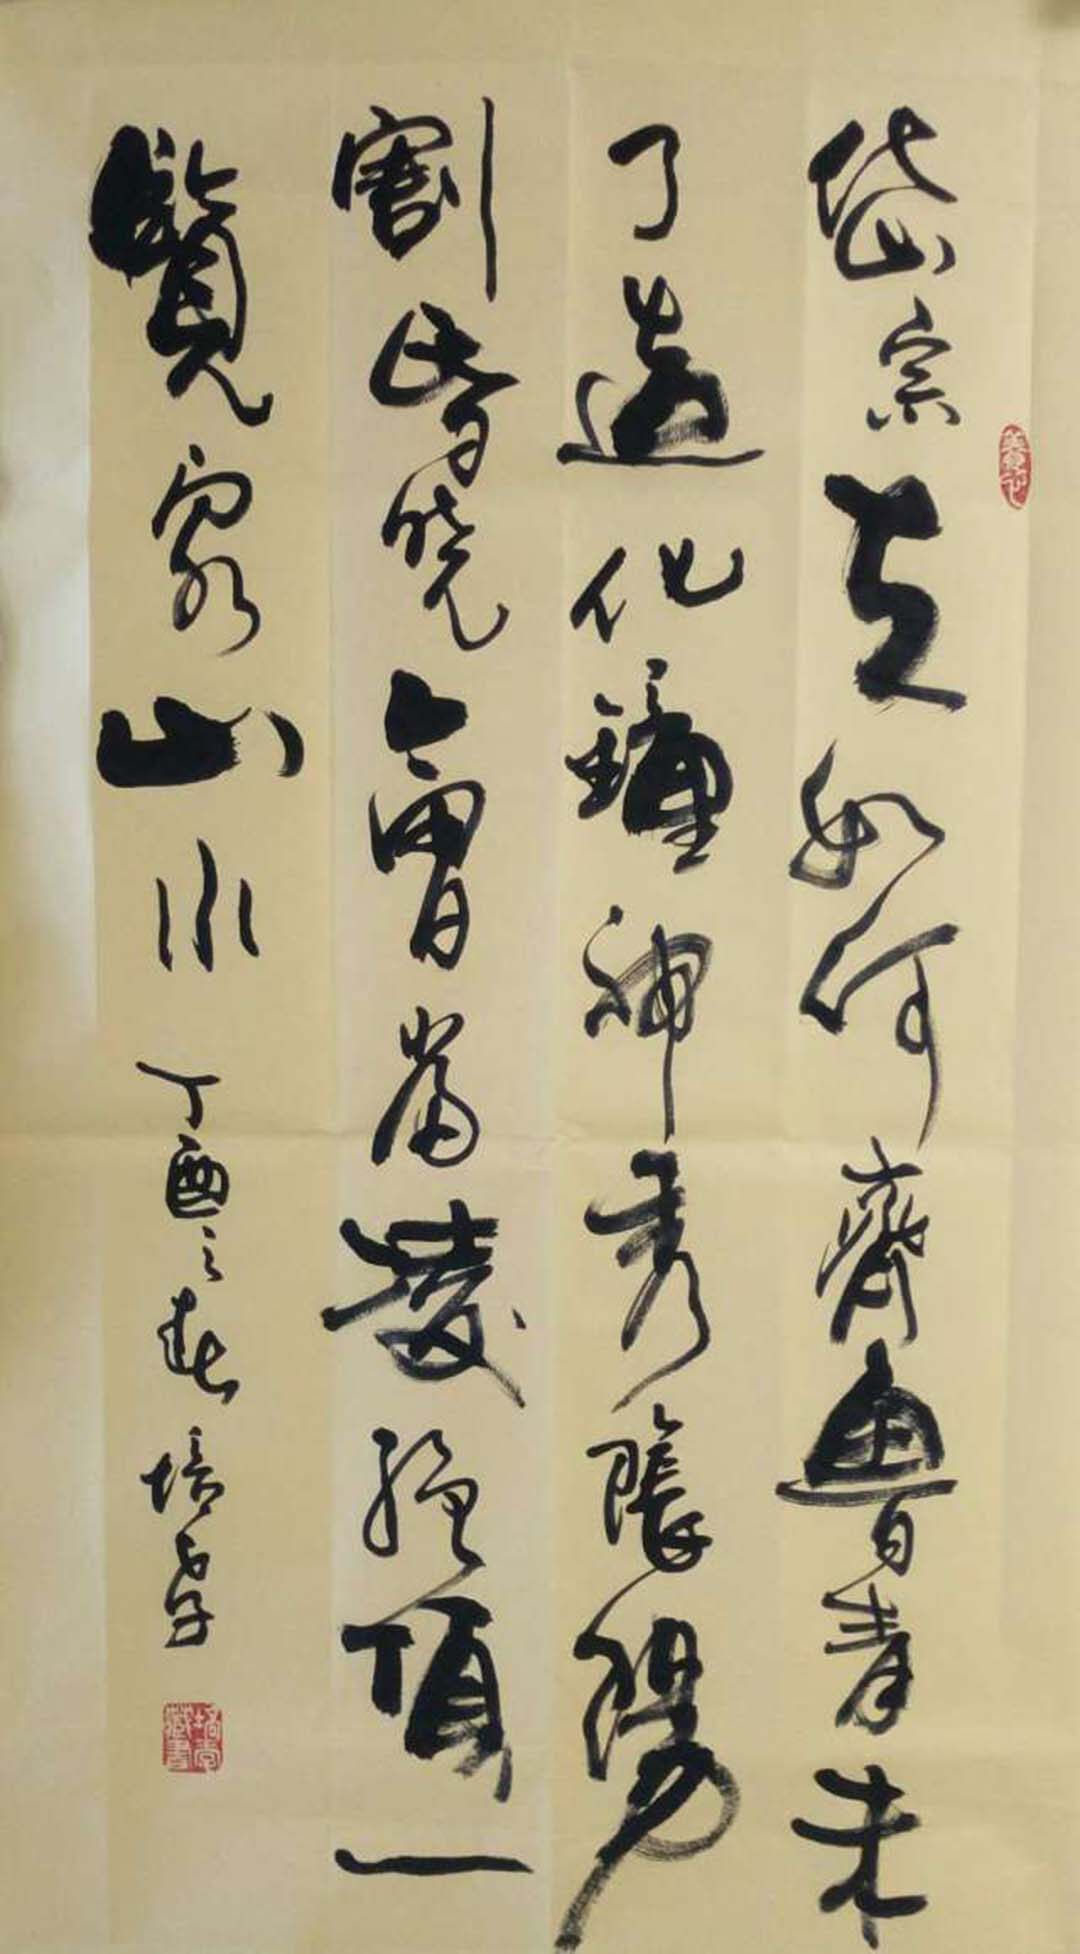 岱宗夫如何齊魯青未
了造化鐘神秀陰陽
割昏曉會當凌絕頂一
覽衆山小 丁酉之春 培